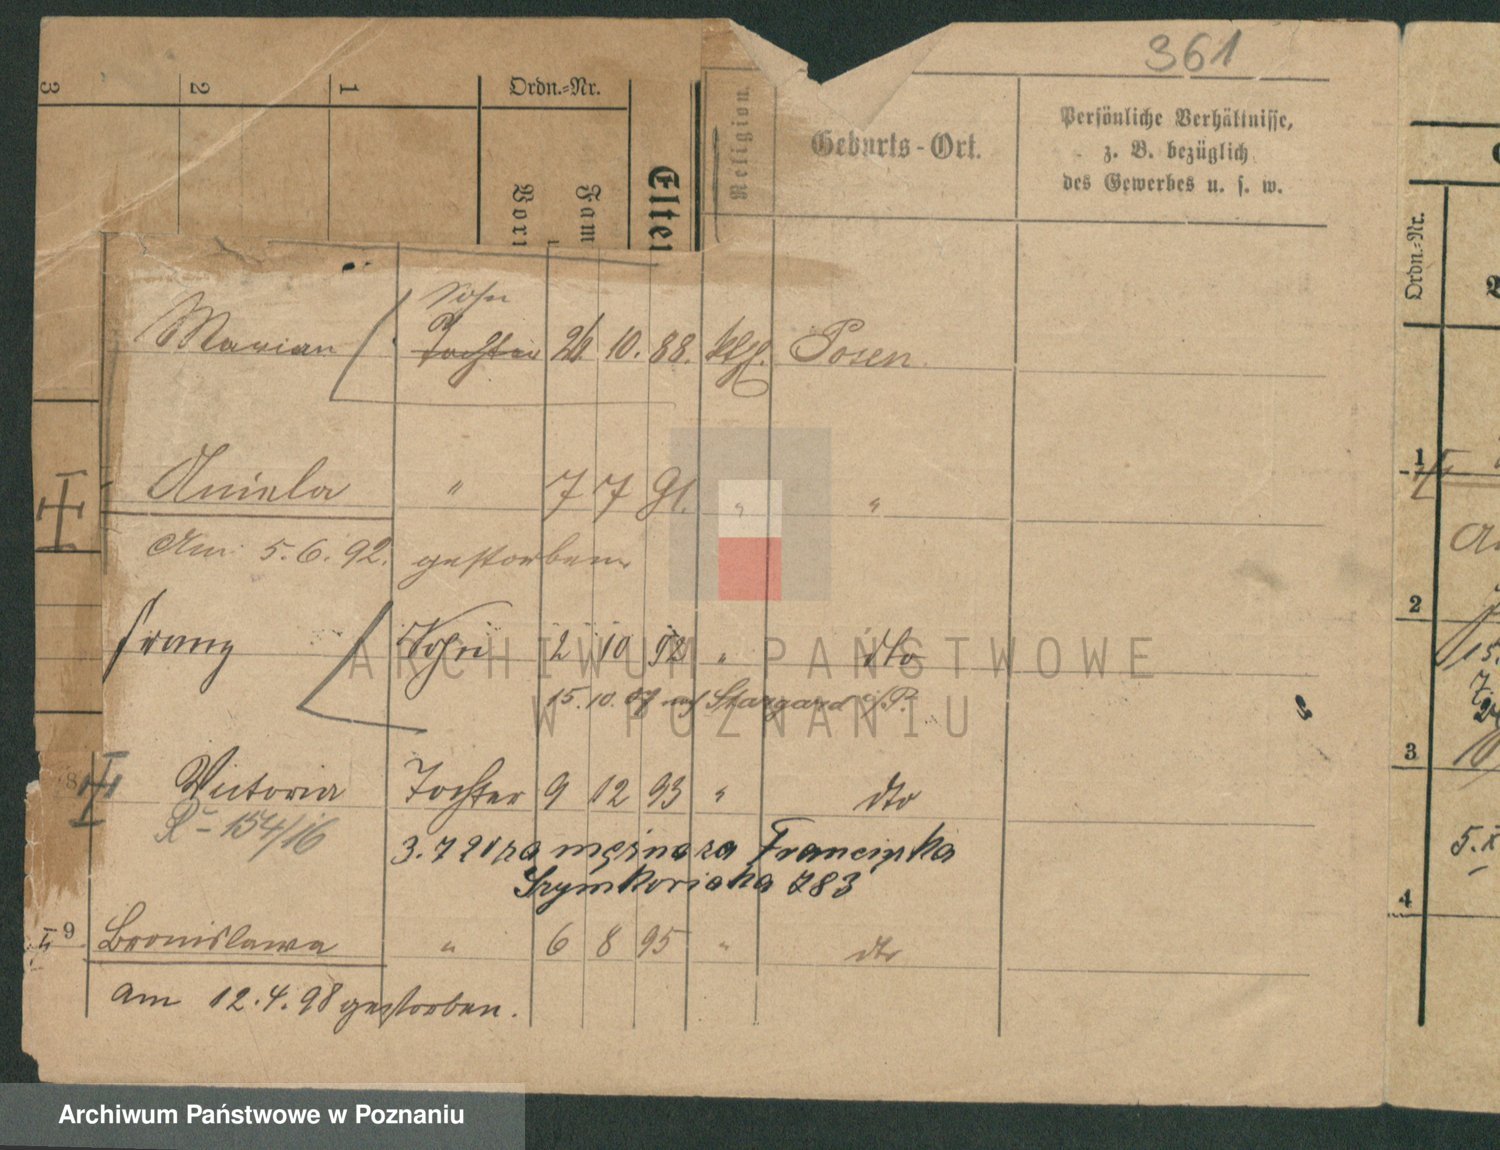 361
3 2 1 Ordn.-Nr.
Elter
Fam
Vor
Religion
Geburts-Ort.
Persönliche Verhältnisse,
z. B. bezüglich
des Gewerbes u. s. w.
Sohn
Marian Tochter 21 10. 88. ktl. Posen
Aniela " 7 7 91. " "
Am 5.6.92. gestorben
Franz Sohn 2 10 92 " dto
15.10.09 Stargard i/P.
8 Victoria Tochter 9 12 93 " dto
R - 154/16
3.7 21 za mężna za Franciszka
Szymkowiaka 783
9 Bronislawa " 6 8 95 " dto
am 12.4.98 gestorben.
Ordn.-Nr.
1
2
15.
3
10
5.X
4
ARCHIWUM PAŃSTWOWE
W POZNANIU
Archiwum Państwowe w Poznaniu